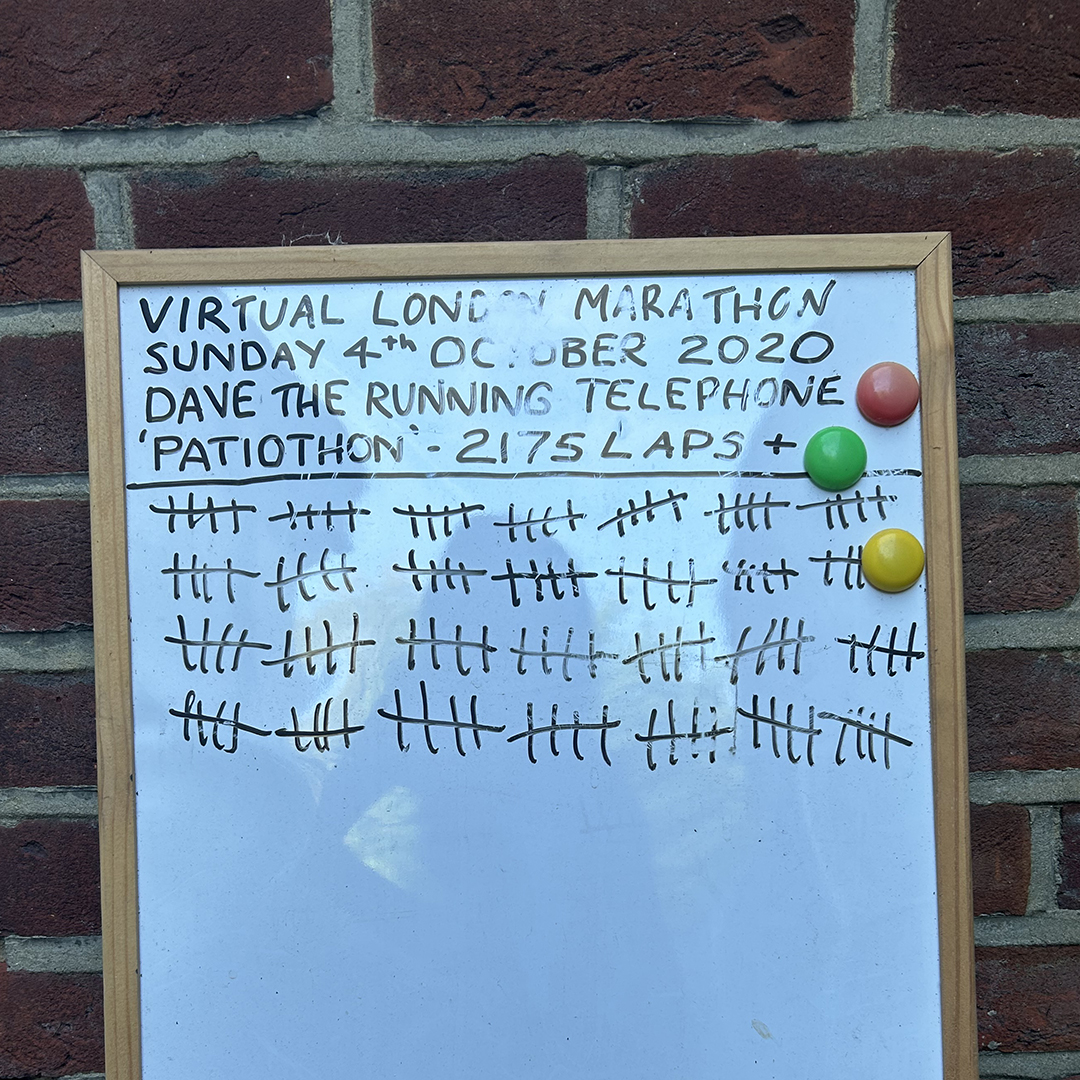 VIRTUAL LONDON MARATHON
SUNDAY 4th OCTOBER 2020
DAVE THE RUNNING TELEPHONE
'PATIOTHON' - 2175 LAPS +